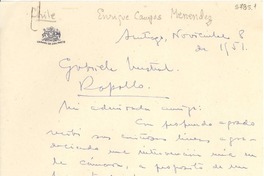 Chile
Enrique Campos Menendez
Santiago, Noviembre 8
de 1951.
Gabriela Mistral
Rapallo.
Mi admirada amiga:
Con profundo agrado
recibí sus cariñosas líneas agra-
deciendo una intervención mía en
la Cámara, a propósito de un